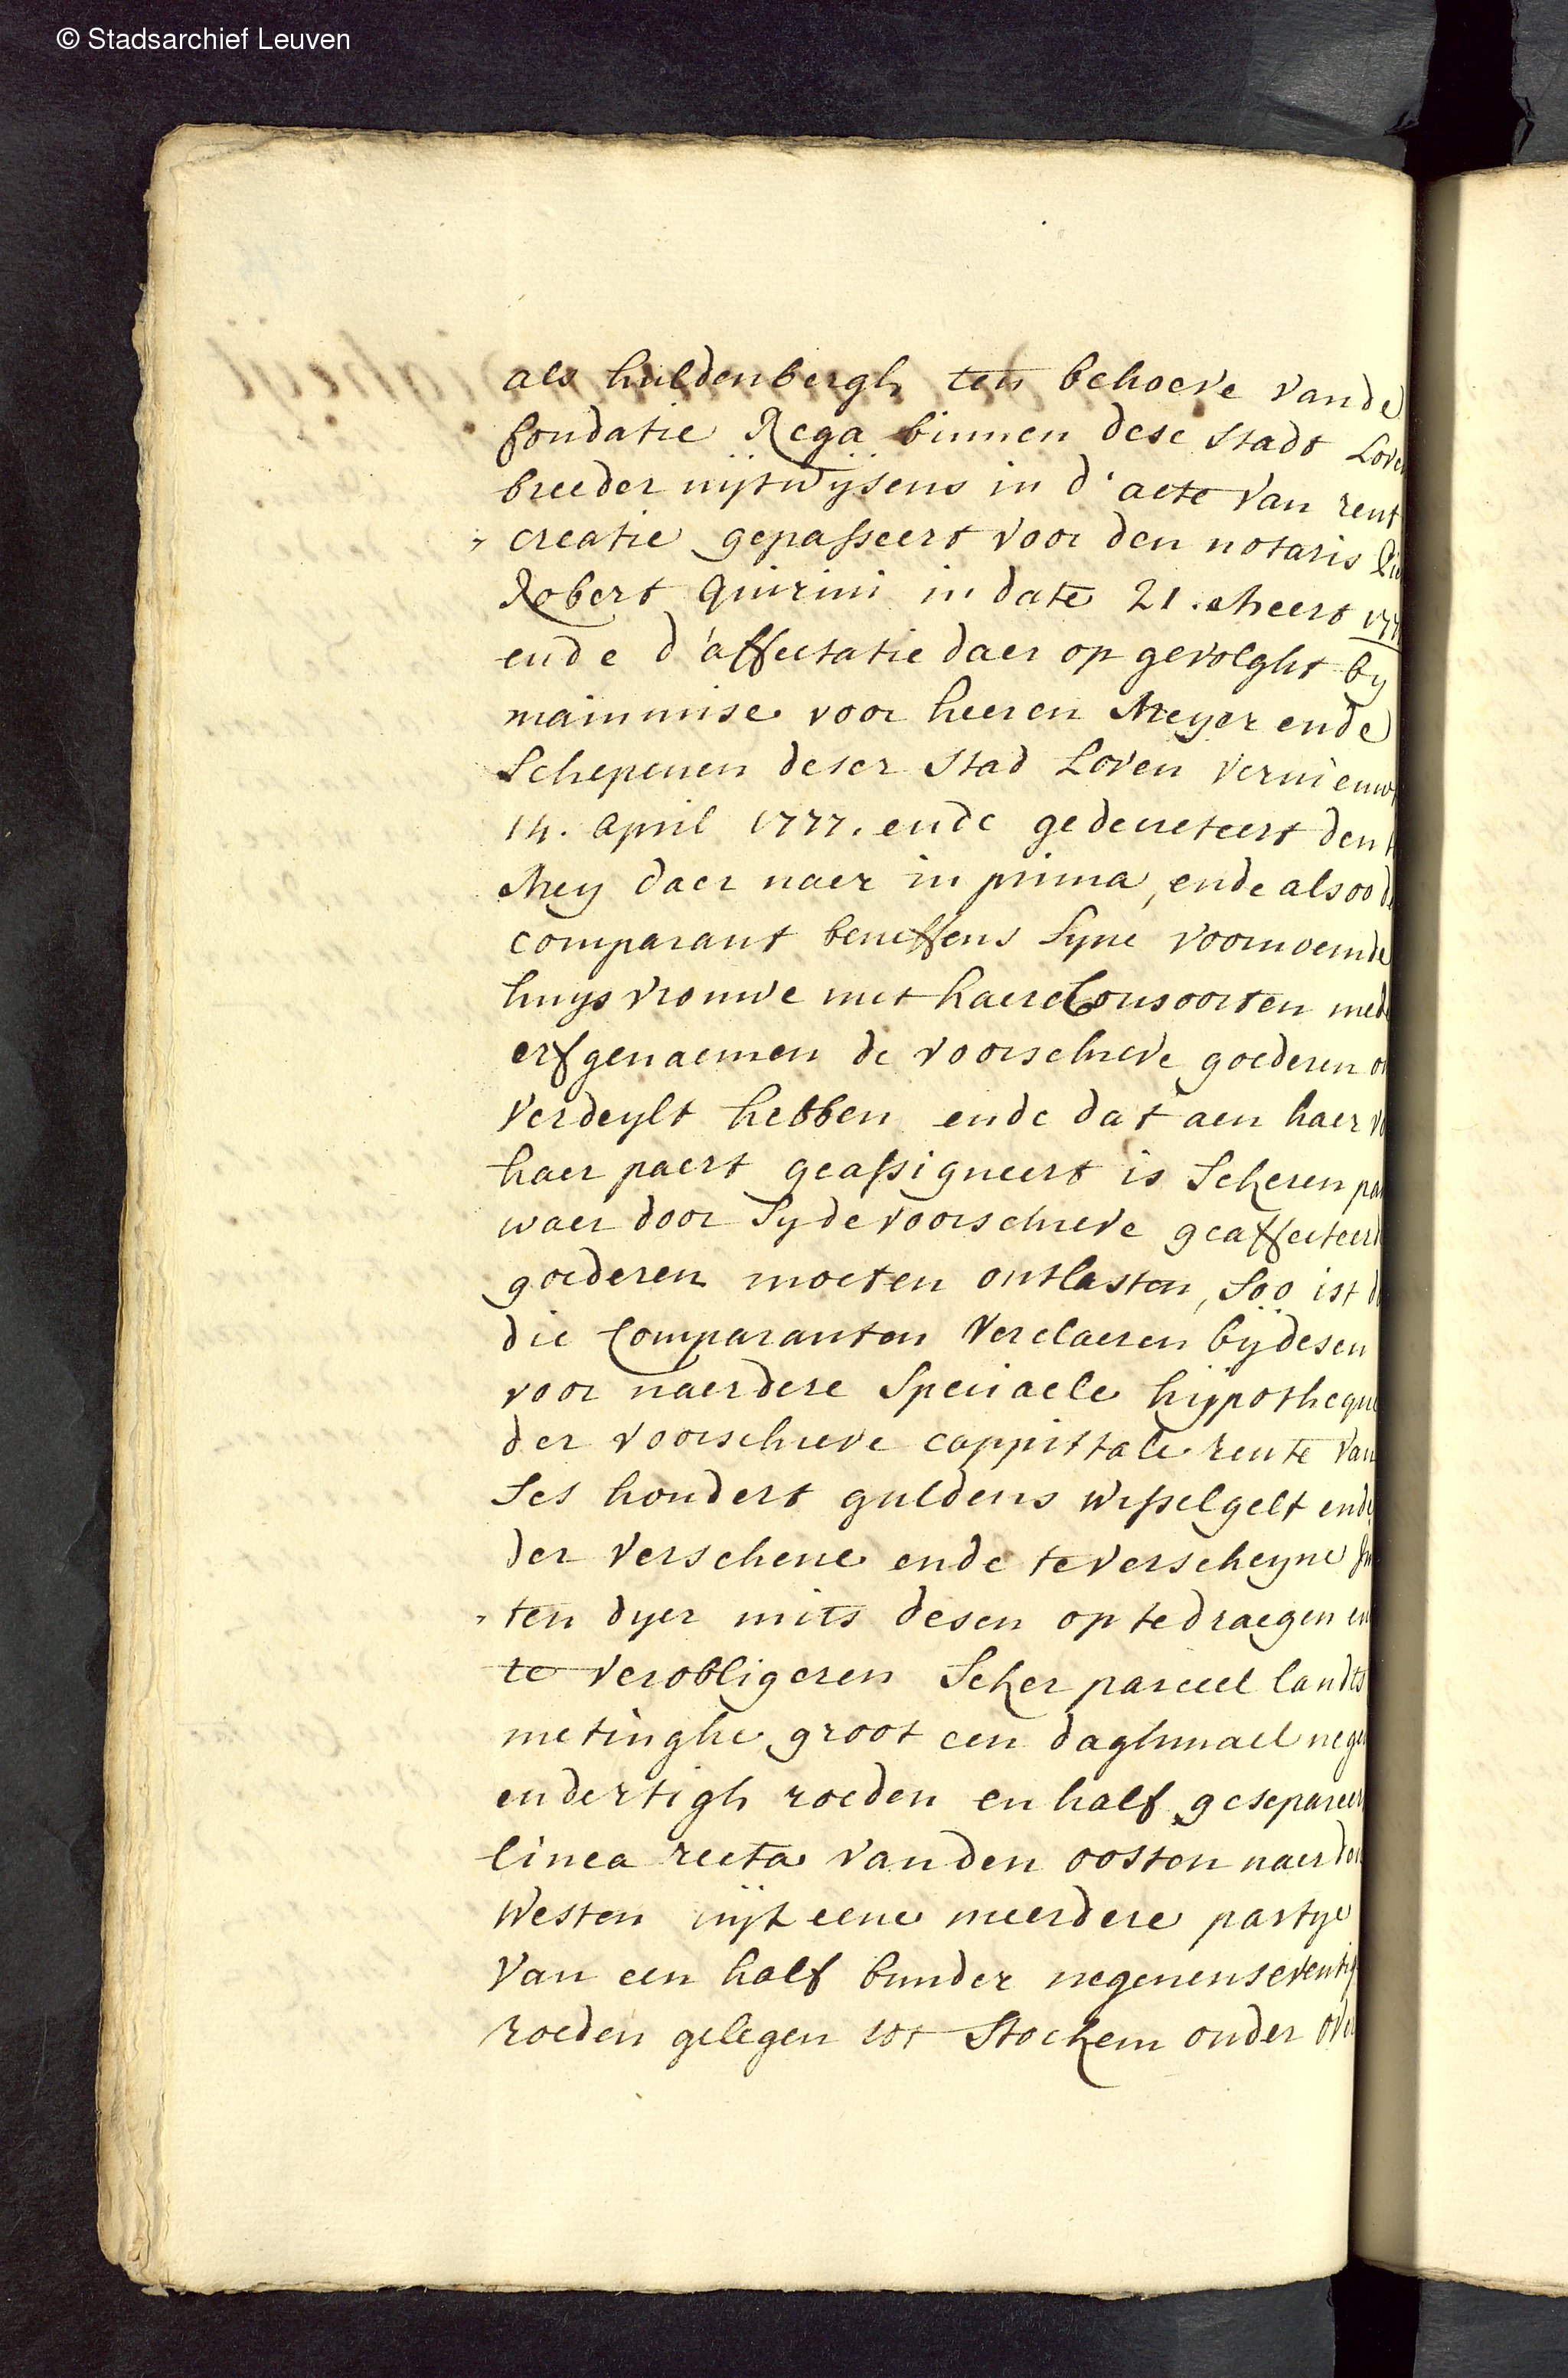 © Stadsarchief Leuven
als huldenbergh ten behoeve vande
fondatie Rega binnen dese stadt Loven
breeder uÿtwÿsens in d'acte van rent
creatie gepasseert voor den notaris
Robert Quirini in date 21. Meert
ende d'affectatie daer op gevolght by
mainmise voor heeren Meyer ende
Schepenen deser stad Loven vernieuwt
14. april 1777. ende gedecreteert den
Mey daer naer in prima, ende alsoo de
comparant beneffens syne voornoemde
huysvrouwe met haere Consoorten mede
erfgenaemen de voorschreve goederen
verdeylt hebben ende dat aen haer
haer paert geassigneert is seker
waer door sy de voorschreve geaffecteerde
goederen moeten ontlasten, soo ist
die Comparanten verclaeren bÿ desen
voor naerdere speciaele hÿpotheque
der voorschreve cappittale rente van
ses hondert guldens wisselgelt ende
der verschene ende te verscheyne
ten dyer mits desen op te draegen en
te verobligeren seker parceel landts
metinghe groot een daghmael negen
endertigh roeden en half gesepareert
linea recta van den oosten naer den
westen uÿt eene meerdere partye
van een half bunder negenenseventigh
roeden gelegen tot Stockem onder